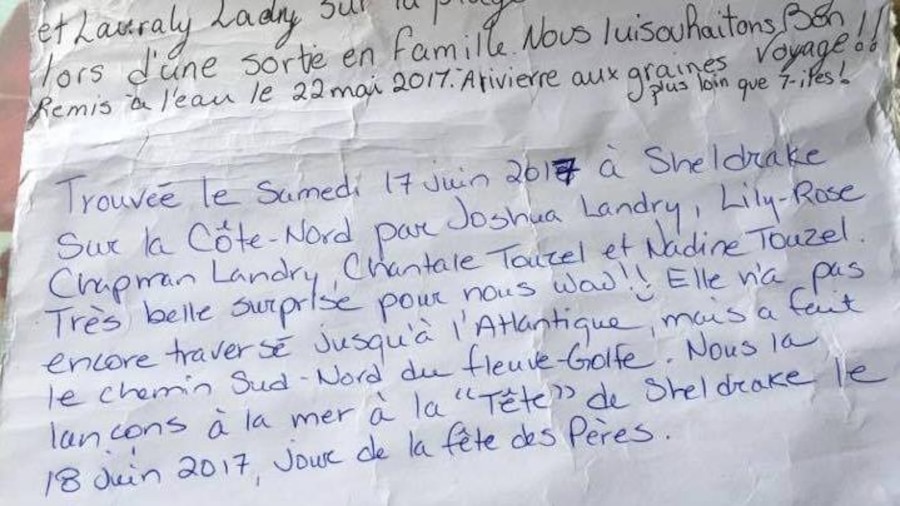 et Lauraly Ladry sur la plage
lors d'une sortie en famille. Nous luisouhaitons Bon
Remis à l'eau le 22 mai 2017. Arivierre aux graines voyage!!
plus loin que 7-iles!
Trouvée le Samedi 17 juin 2017 à Sheldrake
Sur la Côte-Nord par Joshua Landry, Lily-Rose
Chapman Landry, Chantale Touzel et Nadine Touzel.
Très belle surprise pour nous waw!! Elle n'a pas
encore traversé jusqu'à l'Atlantique, mais a fait
le chemin Sud-Nord du fleuve-Golfe. Nous la
lançons à la mer à la "Tête" de Sheldrake le
18 juin 2017, jour de la fête des Pères.